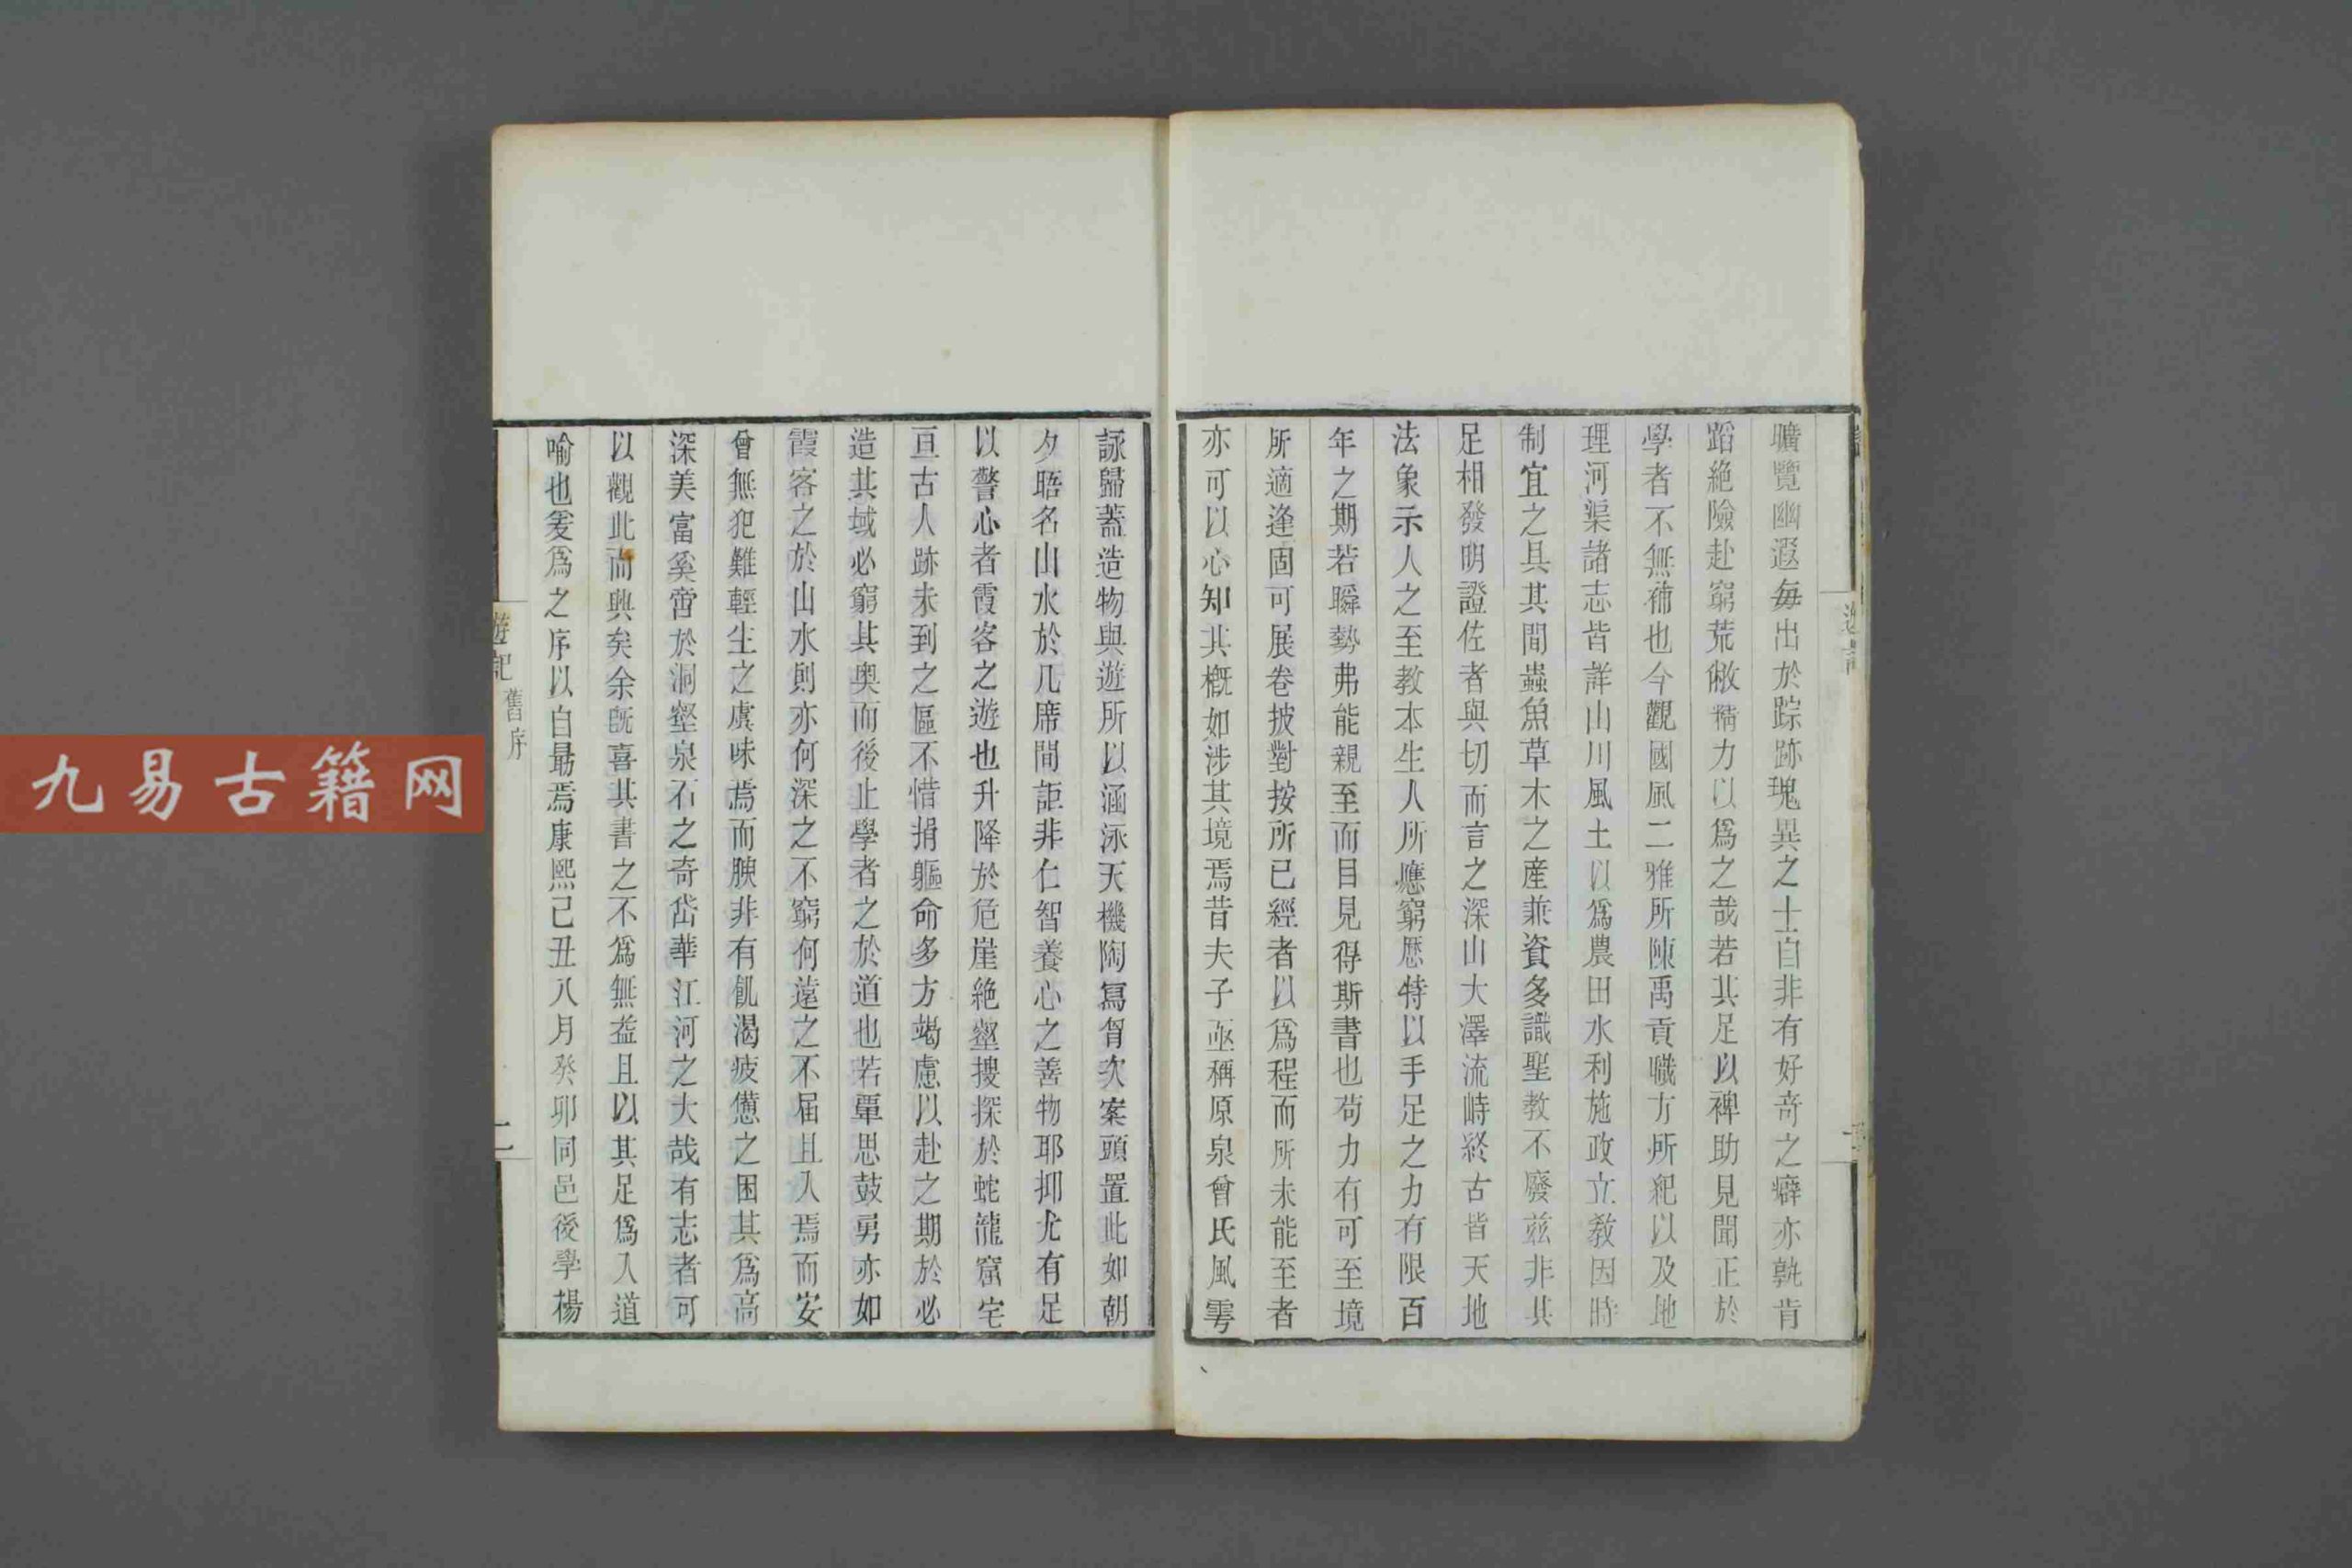 曠覽幽遐每出於踪跡瑰異之士自非有好奇之癖亦孰肯
蹈絶險赴窮荒敝精力以爲之哉若其足以裨助見聞正於
學者不無補也今觀國風二雅所陳禹貢職方所紀以及地
理河渠諸志皆詳山川風土以爲農田水利施政立教因時
制宜之具其間蟲魚草木之産兼資多識聖教不廢兹非其
足相發明證佐者與切而言之深山大澤流峙終古皆天地
法象示人之至教本生人所應窮歷特以手足之力有限百
年之期若瞬勢弗能親至而目見得斯書也苟力有可至境
所適逢固可展卷披對按所已經者以爲程而所未能至者
亦可以心知其槪如涉其境焉昔夫子亟稱原泉曾氏風雩
詠歸蓋造物與遊所以涵泳天機陶冩胷次案頭置此如朝
夕晤名山水於几席間詎非仁智養心之善物耶抑尤有足
以警心者霞客之遊也升降於危崖絶壑搜探於蛇龍窟宅
亘古人跡未到之區不惜捐軀命多方竭慮以赴之期於必
造其域必窮其奧而後止學者之於道也若覃思鼓勇亦如
霞客之於山水則亦何深之不窮何遠之不届且入焉而安
曾無犯難輕生之虞味焉而腴非有飢渴疲憊之困其爲高
深美富奚啻於洞壑泉石之奇岱華江河之大哉有志者可
以觀此而興矣余旣喜其書之不爲無益且以其足爲入道
喻也爰爲之序以自勗焉康熙己丑八月癸卯同邑後學楊
遊記
舊序
二
九易古籍网